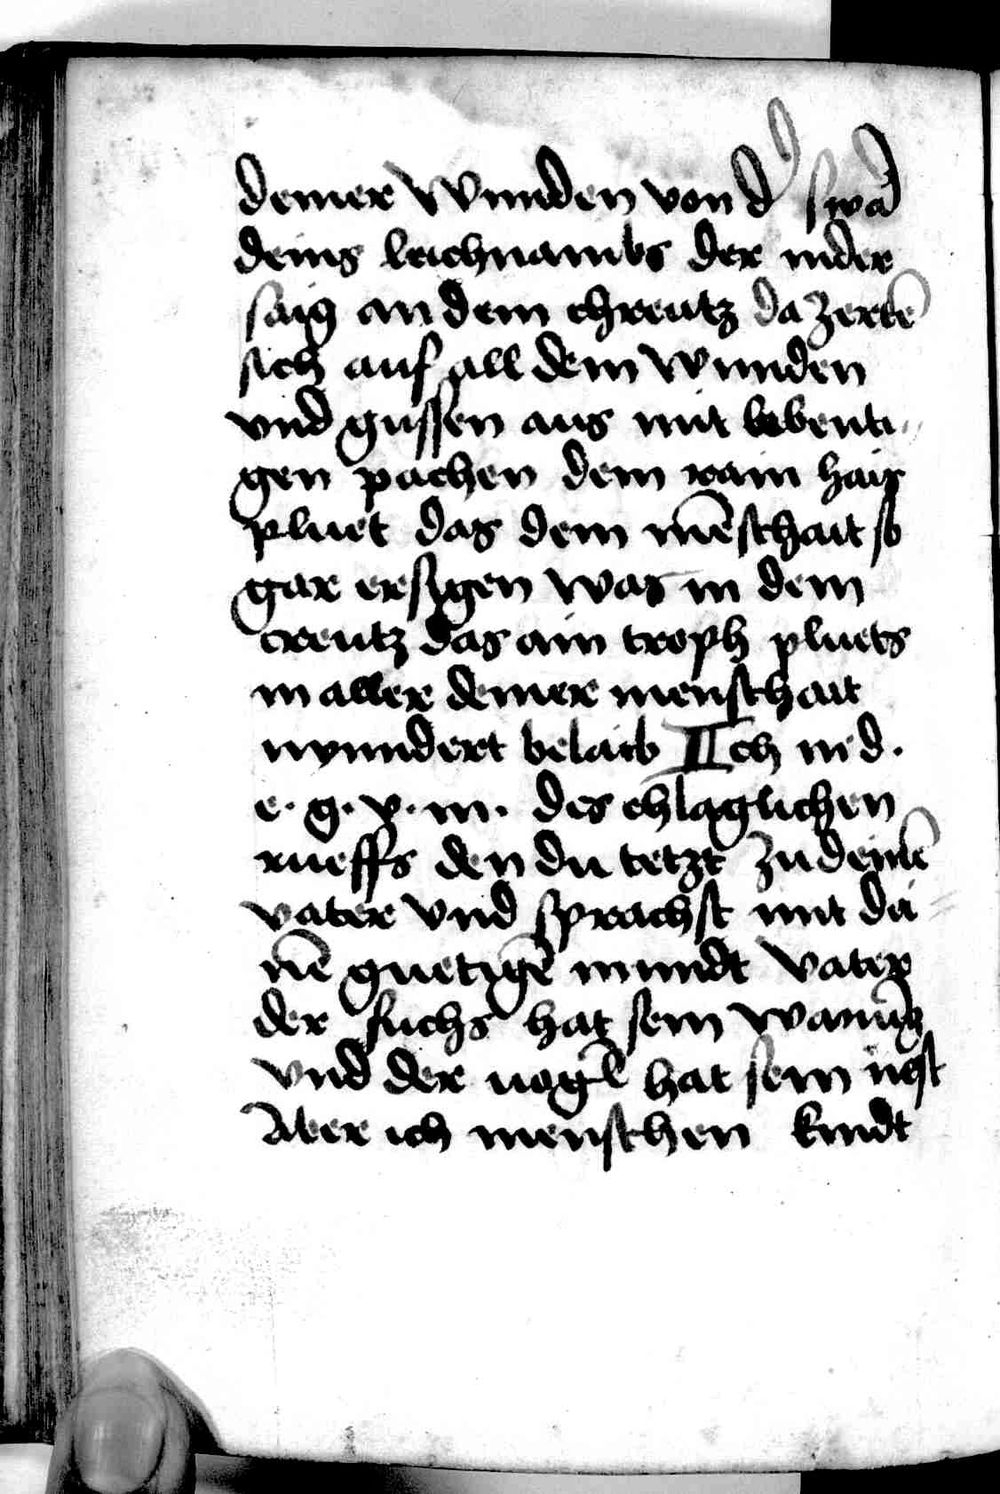 deiner wunden von d᾽ swär
deins leichnambs der nider
saig an dem chreutz da zerten̄
sich auf all dein wunden
vnd gussen aus mit lebenti
gen pachen dein rain hais
pluet das dein mēschait so
gar ersigen was in dem
creutz das ain troph pluets
in aller deiner menschait
nyndert belaib Ich m d.
e. g. v. m. des chlaglichen
rueffs den du tetzt zu deinē
vater vnd sprachst mit dei
nē guetigē mundt vater
der fuchs hat sein wanūg
vnd der uogl hat sein nest
Aber ich menschen kindt